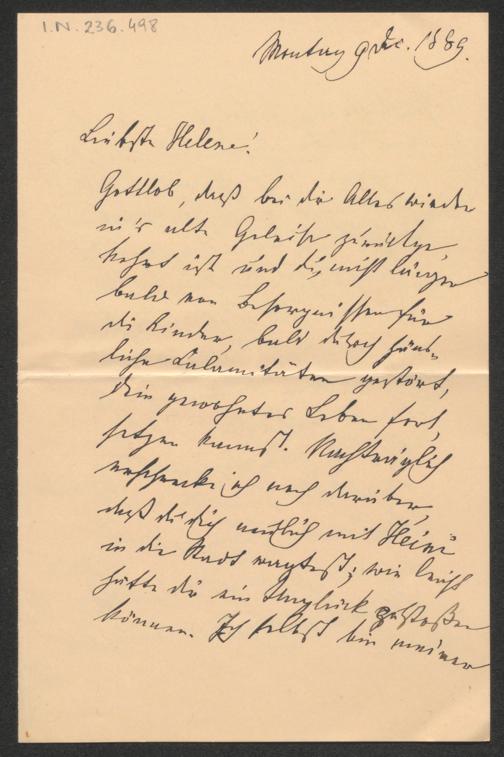 I.N. 236.498
Montag 9 Dec. 1889.
Liebste Helene!
Gottlob, daß bei dir Alles wieder
in's alte Geleise zurückge,
kehrt ist und du, nicht länger
bald von Besorgnissen für
die Kinder, bald durch häus,,
liche Calamitäten gestört,
dein gewohntes Leben fort,
setzen kannst. Nachträglich
erschrecke ich noch darüber,
daß du dich neulich mit Heini
in die Stadt wagtest; wie leicht
hätte dir ein Unglück zustoßen
können. Ich selbst bin meiner